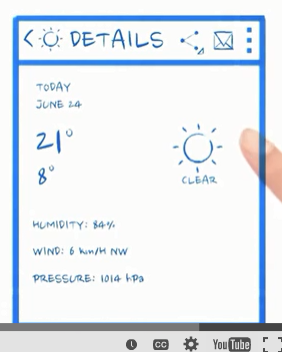 DETAILS
TODAY
JUNE 24
21°
8°
CLEAR
HUMIDITY: 84%
WIND: 6 km/H NW
PRESSURE: 1014 hPa
CC
YouTube